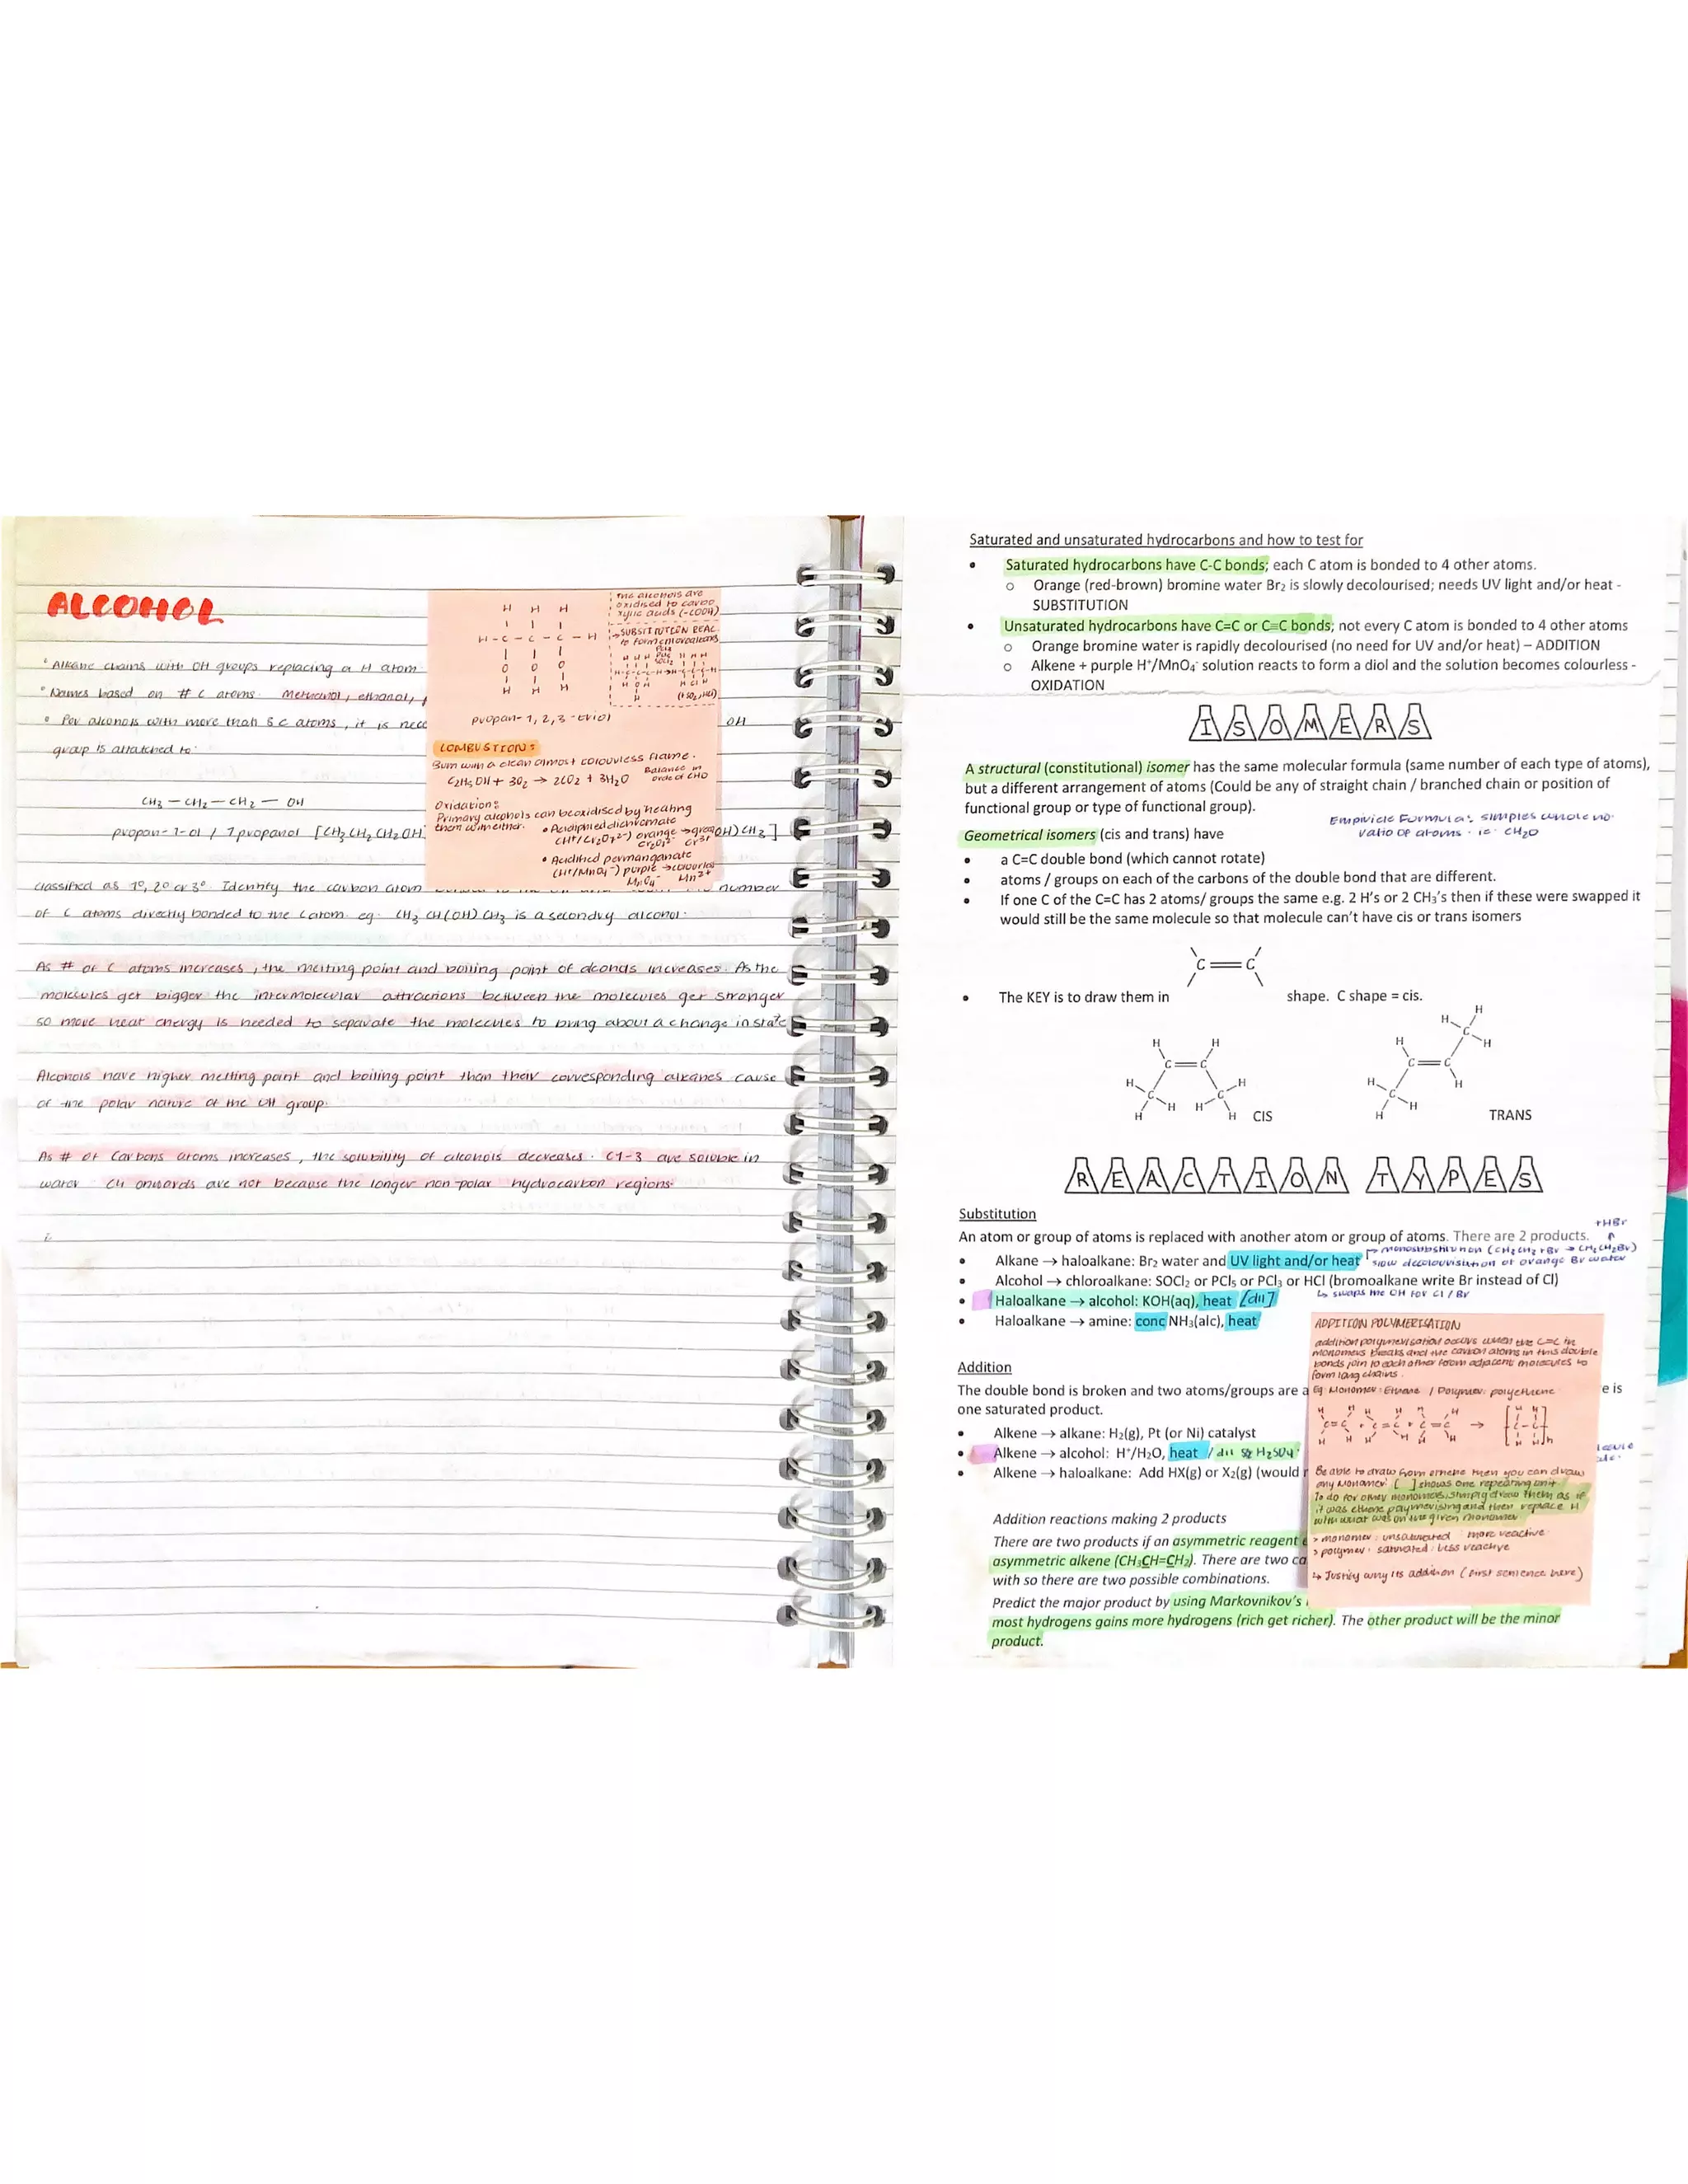 ALCOHOL
° Alkane chains with OH groups replacing a H atom
° Names based on # C atoms. methanol, ethanol,
° For alcohols with more than
group is attatched to:
CH3 — CH2 — CH2 — OH
propan-1-ol / 1 propanol [CH3 CH2 CH2 OH]
OH
OH) CH3]
classified as 1°, 2° or 3°. Identify the carbon atom
number
of C atoms directly bonded to the C atom. eg. CH3 CH(OH) CH3 is a secondry alcohol.
As # of C atoms increases, the melting point and boiling point of alcohols increases. As the
molecules get bigger the intermolecular attractions between the molecules get stronger
so more heat energy is needed to separate the molecules to bring about a change in state
Alcohols have higher melting point and boiling point than their corresponding alkanes cause
of the polar nature of the OH group.
As # of Carbons atoms increases, the solubility of alcohols decreases. C1-3 are soluble in
water C4 onwards are not because the longer non-polar hydrocarbon regions.
H H H
H - C - C - C - H
O O O
H H H
propan-1,2,3-triol
The alcohols are
oxidised to carbo
xylic acids (-COOH)
→SUBSTITUTION REAC
to form chloroalkans
(+SO2, HCl)
COMBUSTION:
Burn with a clean almost colourless flame.
C2H5 OH + 3O2 → 2CO2 + 3H2O
Balance in
orde of CHO
Oxidation:
Primary alcohols can be oxidised by heating
them with either.
• Acidified dichromate
(H+/Cr2O7 2-) orange → green
Cr2O7 2- Cr3+
• Acidified permanganate
(H+/MnO4-) purple → colourless
MnO4- Mn2+
Saturated and unsaturated hydrocarbons and how to test for
• Saturated hydrocarbons have C-C bonds; each C atom is bonded to 4 other atoms.
o Orange (red-brown) bromine water Br2 is slowly decolourised; needs UV light and/or heat -
SUBSTITUTION
• Unsaturated hydrocarbons have C=C or C≡C bonds; not every C atom is bonded to 4 other atoms
o Orange bromine water is rapidly decolourised (no need for UV and/or heat) – ADDITION
o Alkene + purple H+/MnO4- solution reacts to form a diol and the solution becomes colourless -
OXIDATION
ISOMERS
A structural (constitutional) isomer has the same molecular formula (same number of each type of atoms),
but a different arrangement of atoms (Could be any of straight chain / branched chain or position of
functional group or type of functional group).
Empiricle Formula: simples whole no.
ratio of atoms. ie. CH2O
Geometrical isomers (cis and trans) have
• a C=C double bond (which cannot rotate)
• atoms / groups on each of the carbons of the double bond that are different.
• If one C of the C=C has 2 atoms/ groups the same e.g. 2 H's or 2 CH3's then if these were swapped it
would still be the same molecule so that molecule can't have cis or trans isomers
C=C
• The KEY is to draw them in shape. C shape = cis.
H H
C=C
H C H H C H
H H CIS
H H
C H
H C=C
H C H H
H TRANS
REACTION TYPES
Substitution
An atom or group of atoms is replaced with another atom or group of atoms. There are 2 products.
+HBr
• Alkane → haloalkane: Br2 water and UV light and/or heat
monosubstitution (CH2CH2 + Br → CH2CH2Br)
slow decolourisation of orange Br water
• Alcohol → chloroalkane: SOCl2 or PCl5 or PCl3 or HCl (bromoalkane write Br instead of Cl)
↳ swaps the OH for Cl / Br
• Haloalkane → alcohol: KOH(aq), heat [dil]
• Haloalkane → amine: conc NH3(alc), heat
Addition
The double bond is broken and two atoms/groups are a
e is
one saturated product.
• Alkene → alkane: H2(g), Pt (or Ni) catalyst
• Alkene → alcohol: H+/H2O, heat / dil H2SO4
• Alkene → haloalkane: Add HX(g) or X2(g) (would
Addition reactions making 2 products
There are two products if an asymmetric reagent
asymmetric alkene (CH3CH=CH2). There are two ca
with so there are two possible combinations.
Predict the major product by using Markovnikov's
most hydrogens gains more hydrogens (rich get richer). The other product will be the minor
product.
ADDITION POLYMERISATION
addition polymerisation occurs when the C=C in
monomers breaks and the carbon atoms in this double
bonds join to each other from adjacent molecules to
form long chains.
Eg: Monomer: Ethene / Polymer: polyethene
C=C + C=C + C=C →
Be able to draw from ethene then you can draw
any monomer. [ ] shows one repeating unit
To do for other monomers, simply draw them as if
it was ethene polymerising and then replace H
with what was on the given monomer
> monomer: unsaturated : more reactive
> polymer: saturated : less reactive
↳ Justify why its addition (first sentence here)